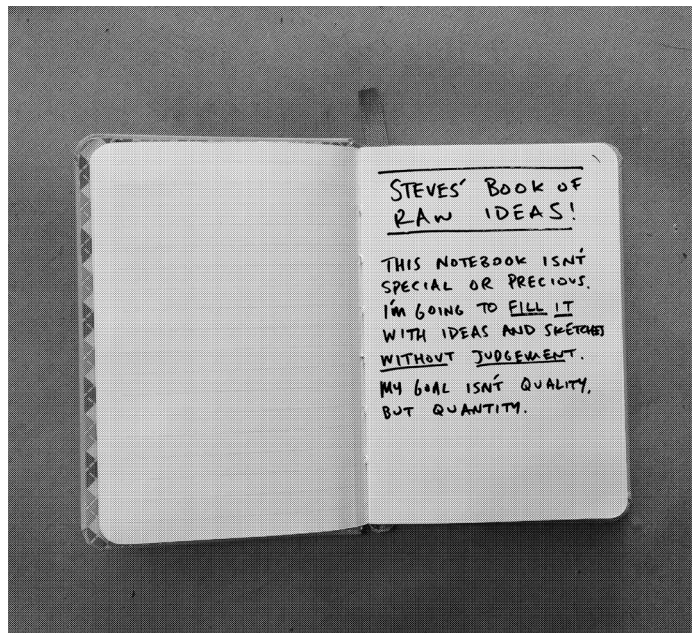 STEVES' BOOK OF
RAW IDEAS!
THIS NOTEBOOK ISN'T
SPECIAL OR PRECIOUS.
I'M GOING TO FILL IT
WITH IDEAS AND SKETCHES
WITHOUT JUDGEMENT.
MY GOAL ISN'T QUALITY,
BUT QUANTITY.